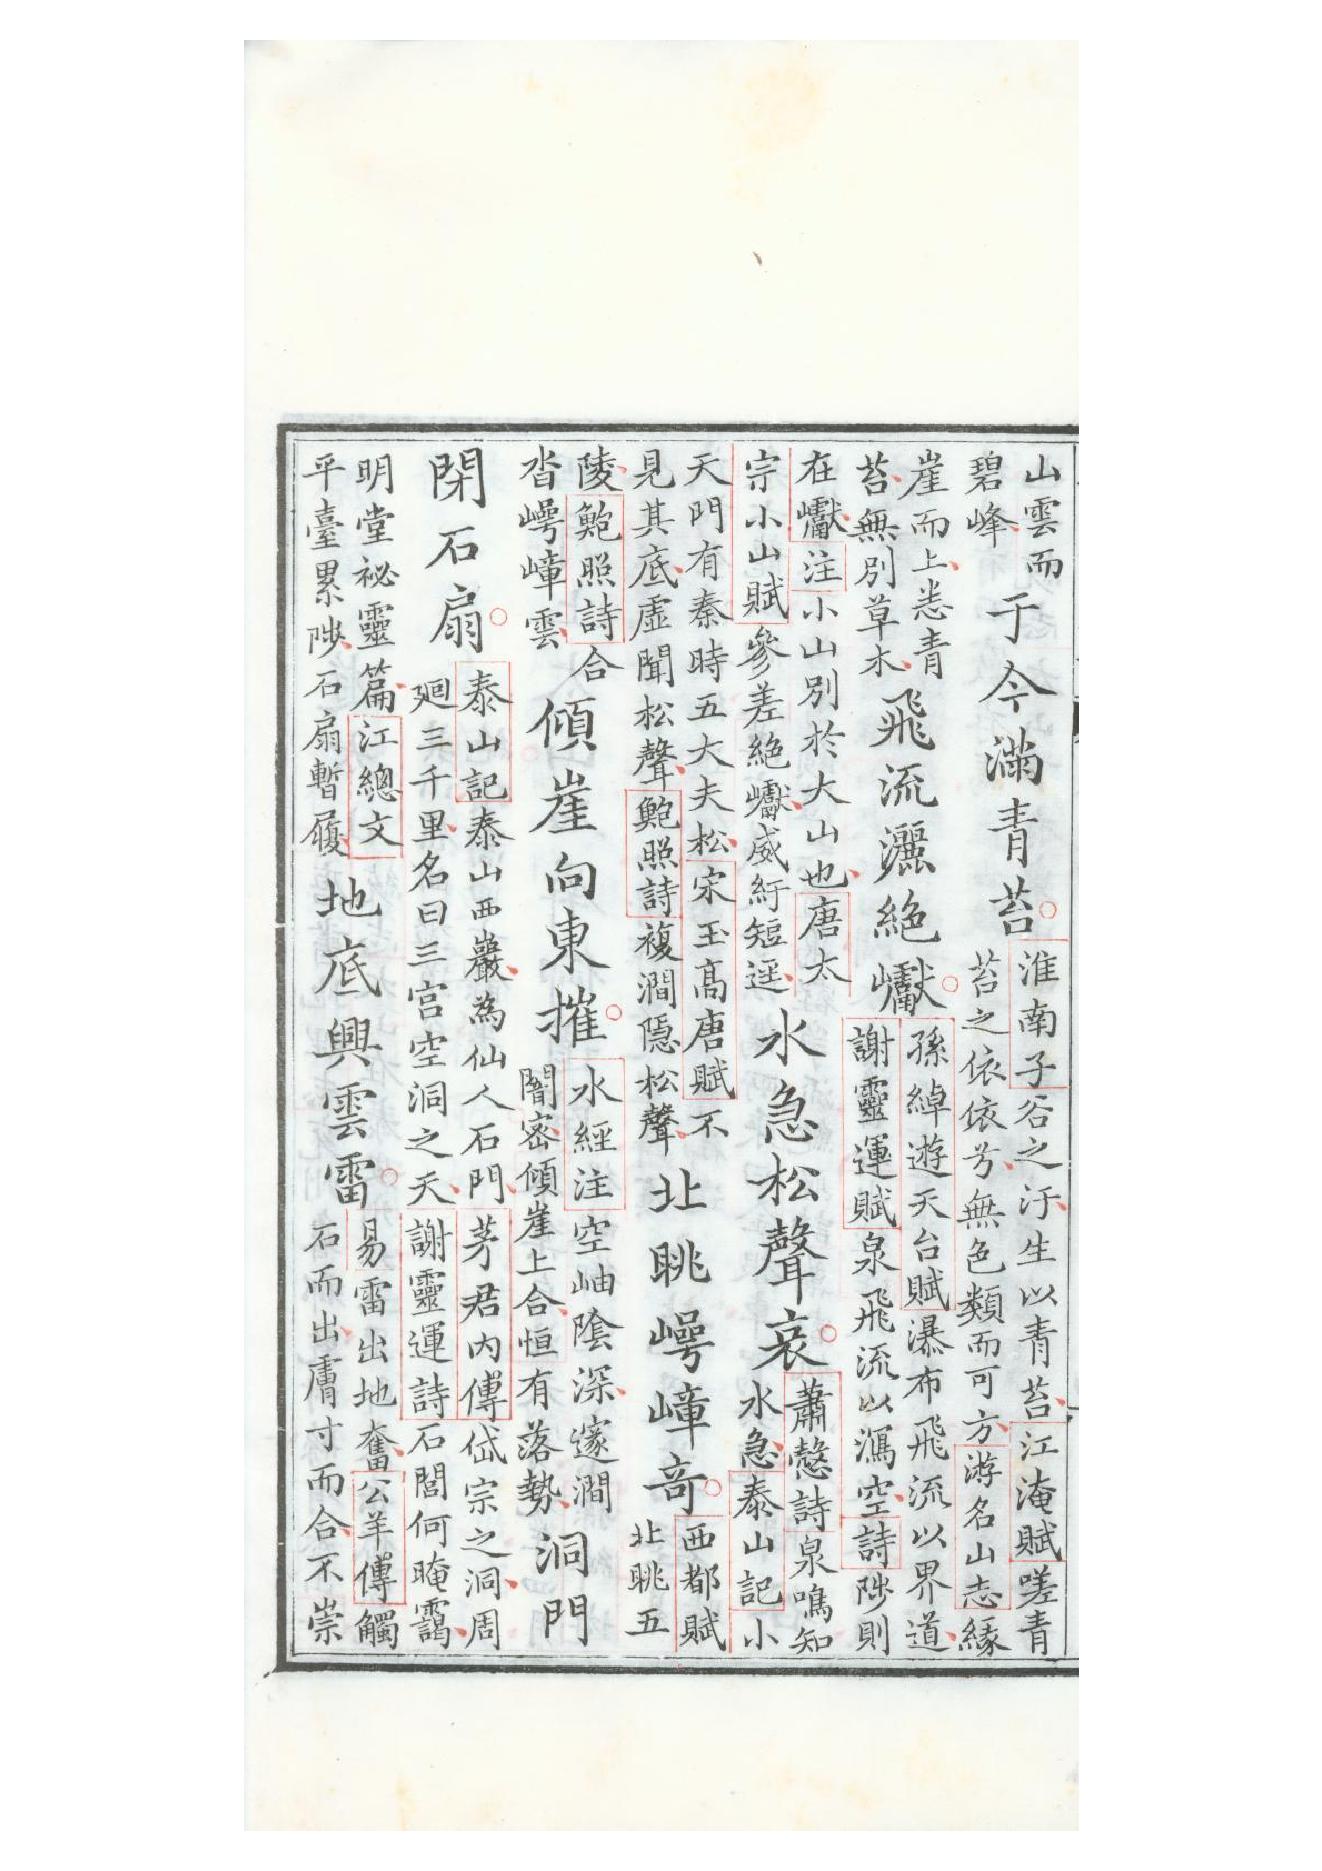 山雲而
碧峰
于今滿青苔
淮南子谷之汙生以青苔江淹賦嗟青
苔之依依兮無色類而可方游名山志緣
崖而上悉青
苔無別草木
飛流灑絕巘
孫綽遊天台賦瀑布飛流以界道
謝靈運賦泉飛流以瀉空詩陟則
在巘注小山別於大山也唐太
宗小山賦參差絕巘威紆短逕
水急松聲哀
蕭慤詩泉鳴知
水急泰山記小
天門有秦時五大夫松宋玉高唐賦不
見其底虛聞松聲鮑照詩複澗隱松聲
北眺崿嶂奇
西都賦
北眺五
陵鮑照詩合
沓崿嶂雲
傾崖向東摧
水經注空岫陰深邃澗
闇密傾崖上合恒有落勢
洞門
閉石扇
泰山記泰山西巖為仙人石門茅君內傳岱宗之洞周
廻三千里名曰三宮空洞之天謝靈運詩石閭何晻靄
明堂祕靈篇江總文
平臺累陟石扇暫履
地底興雲雷
易雷出地奮公羊傳觸
石而出膚寸而合不崇